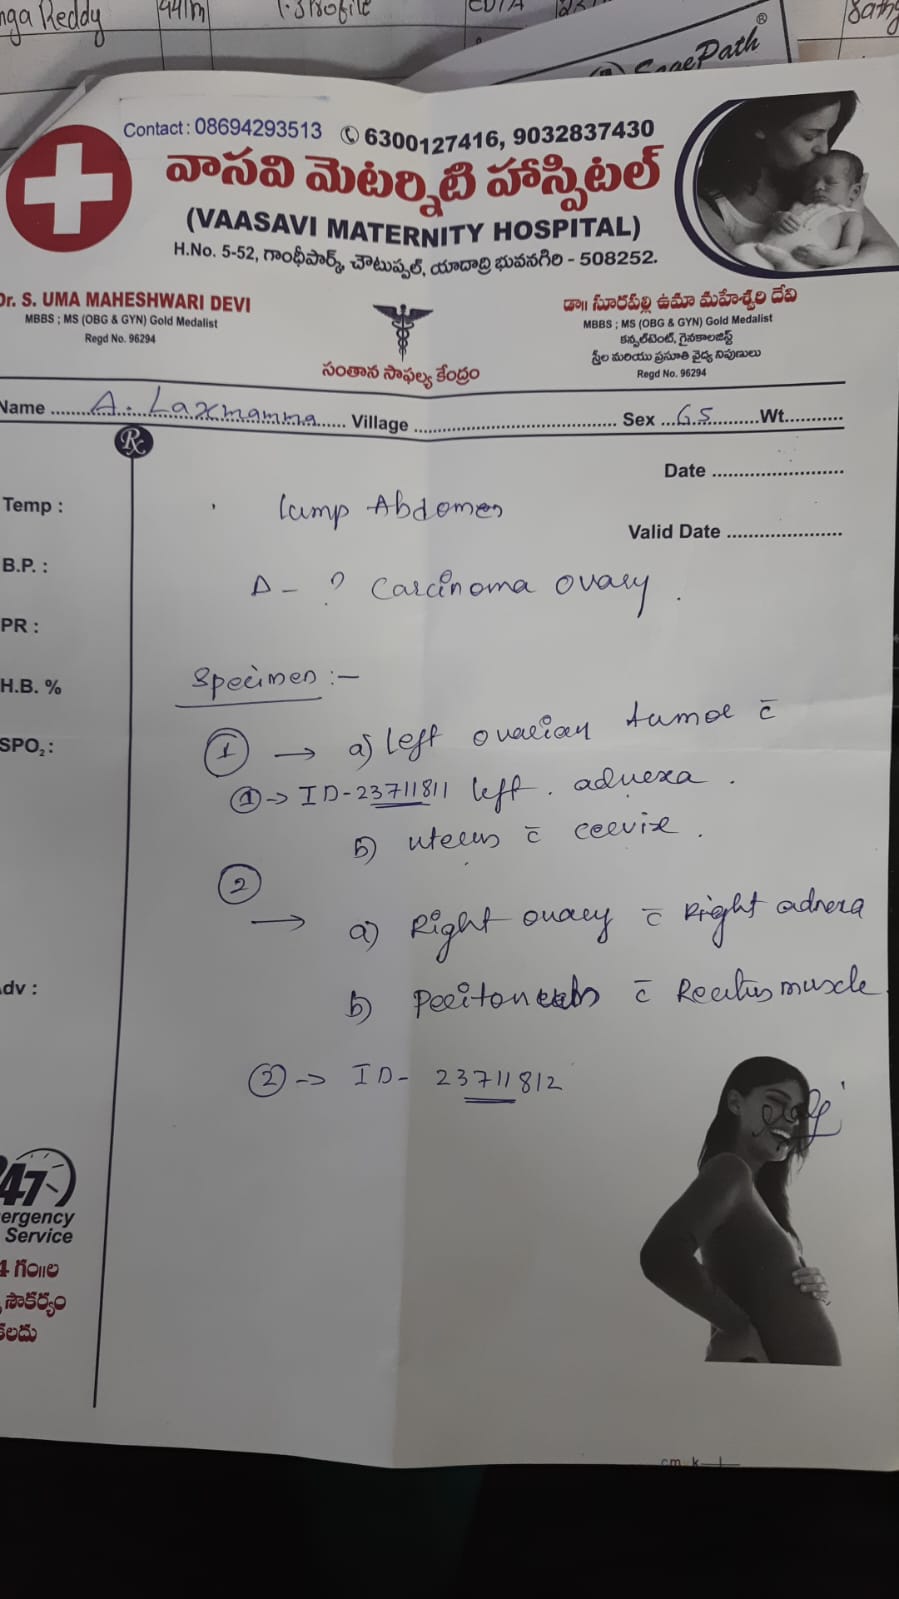 nga Reddy 44/m T.3 Profile EDTA
SagePath®
Contact : 08694293513 6300127416, 9032837430
వాసవి మెటర్నిటి హాస్పిటల్
(VAASAVI MATERNITY HOSPITAL)
H.No. 5-52, గాంధీపార్క్, చౌటుప్పల్, యాదాద్రి భువనగిరి - 508252.
Dr. S. UMA MAHESHWARI DEVI
MBBS ; MS (OBG & GYN) Gold Medalist
Regd No. 96294
సంతాన సాఫల్య కేంద్రం
డా॥ సూరపల్లి ఉమా మహేశ్వరి దేవి
MBBS ; MS (OBG & GYN) Gold Medalist
కన్సల్టెంట్, గైనకాలజిస్ట్
స్త్రీల మరియు ప్రసూతి వైద్య నిపుణులు
Regd No. 96294
Name A. Laxmamma Village Sex 65 Wt.
Rx
Date
Valid Date
Temp :
B.P. :
PR :
H.B. %
SPO2 :
Adv :
lump Abdomen
D - ? Carcinoma ovary.
Specimen :-
1 → a) left ovarian tumor c̄
1 → ID-23711811 left. adnexa.
b) uterus c̄ cervix.
2
→ a) Right ovary c̄ Right adnexa
b) Peritoneum c̄ Rectus muscle
2 → ID- 23711812
47
ergency
Service
4 గం॥ల
సౌకర్యం
కలదు
cm k